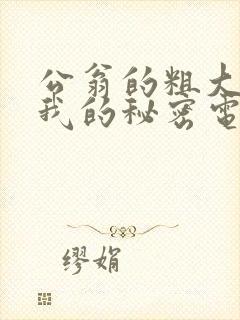 公翁的粗大
我的秘密電
缪娟